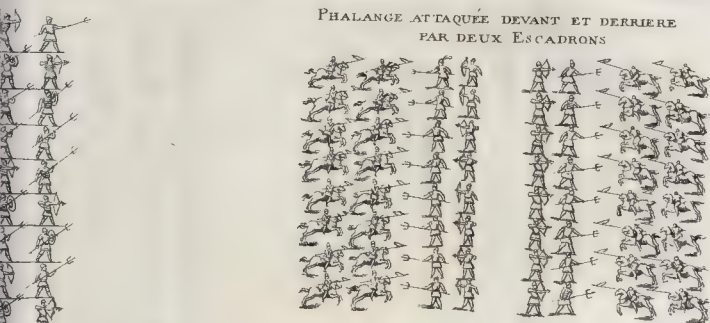 PHALANGE ATTAQUÉE DEVANT ET DERRIERE
PAR DEUX ESCADRONS